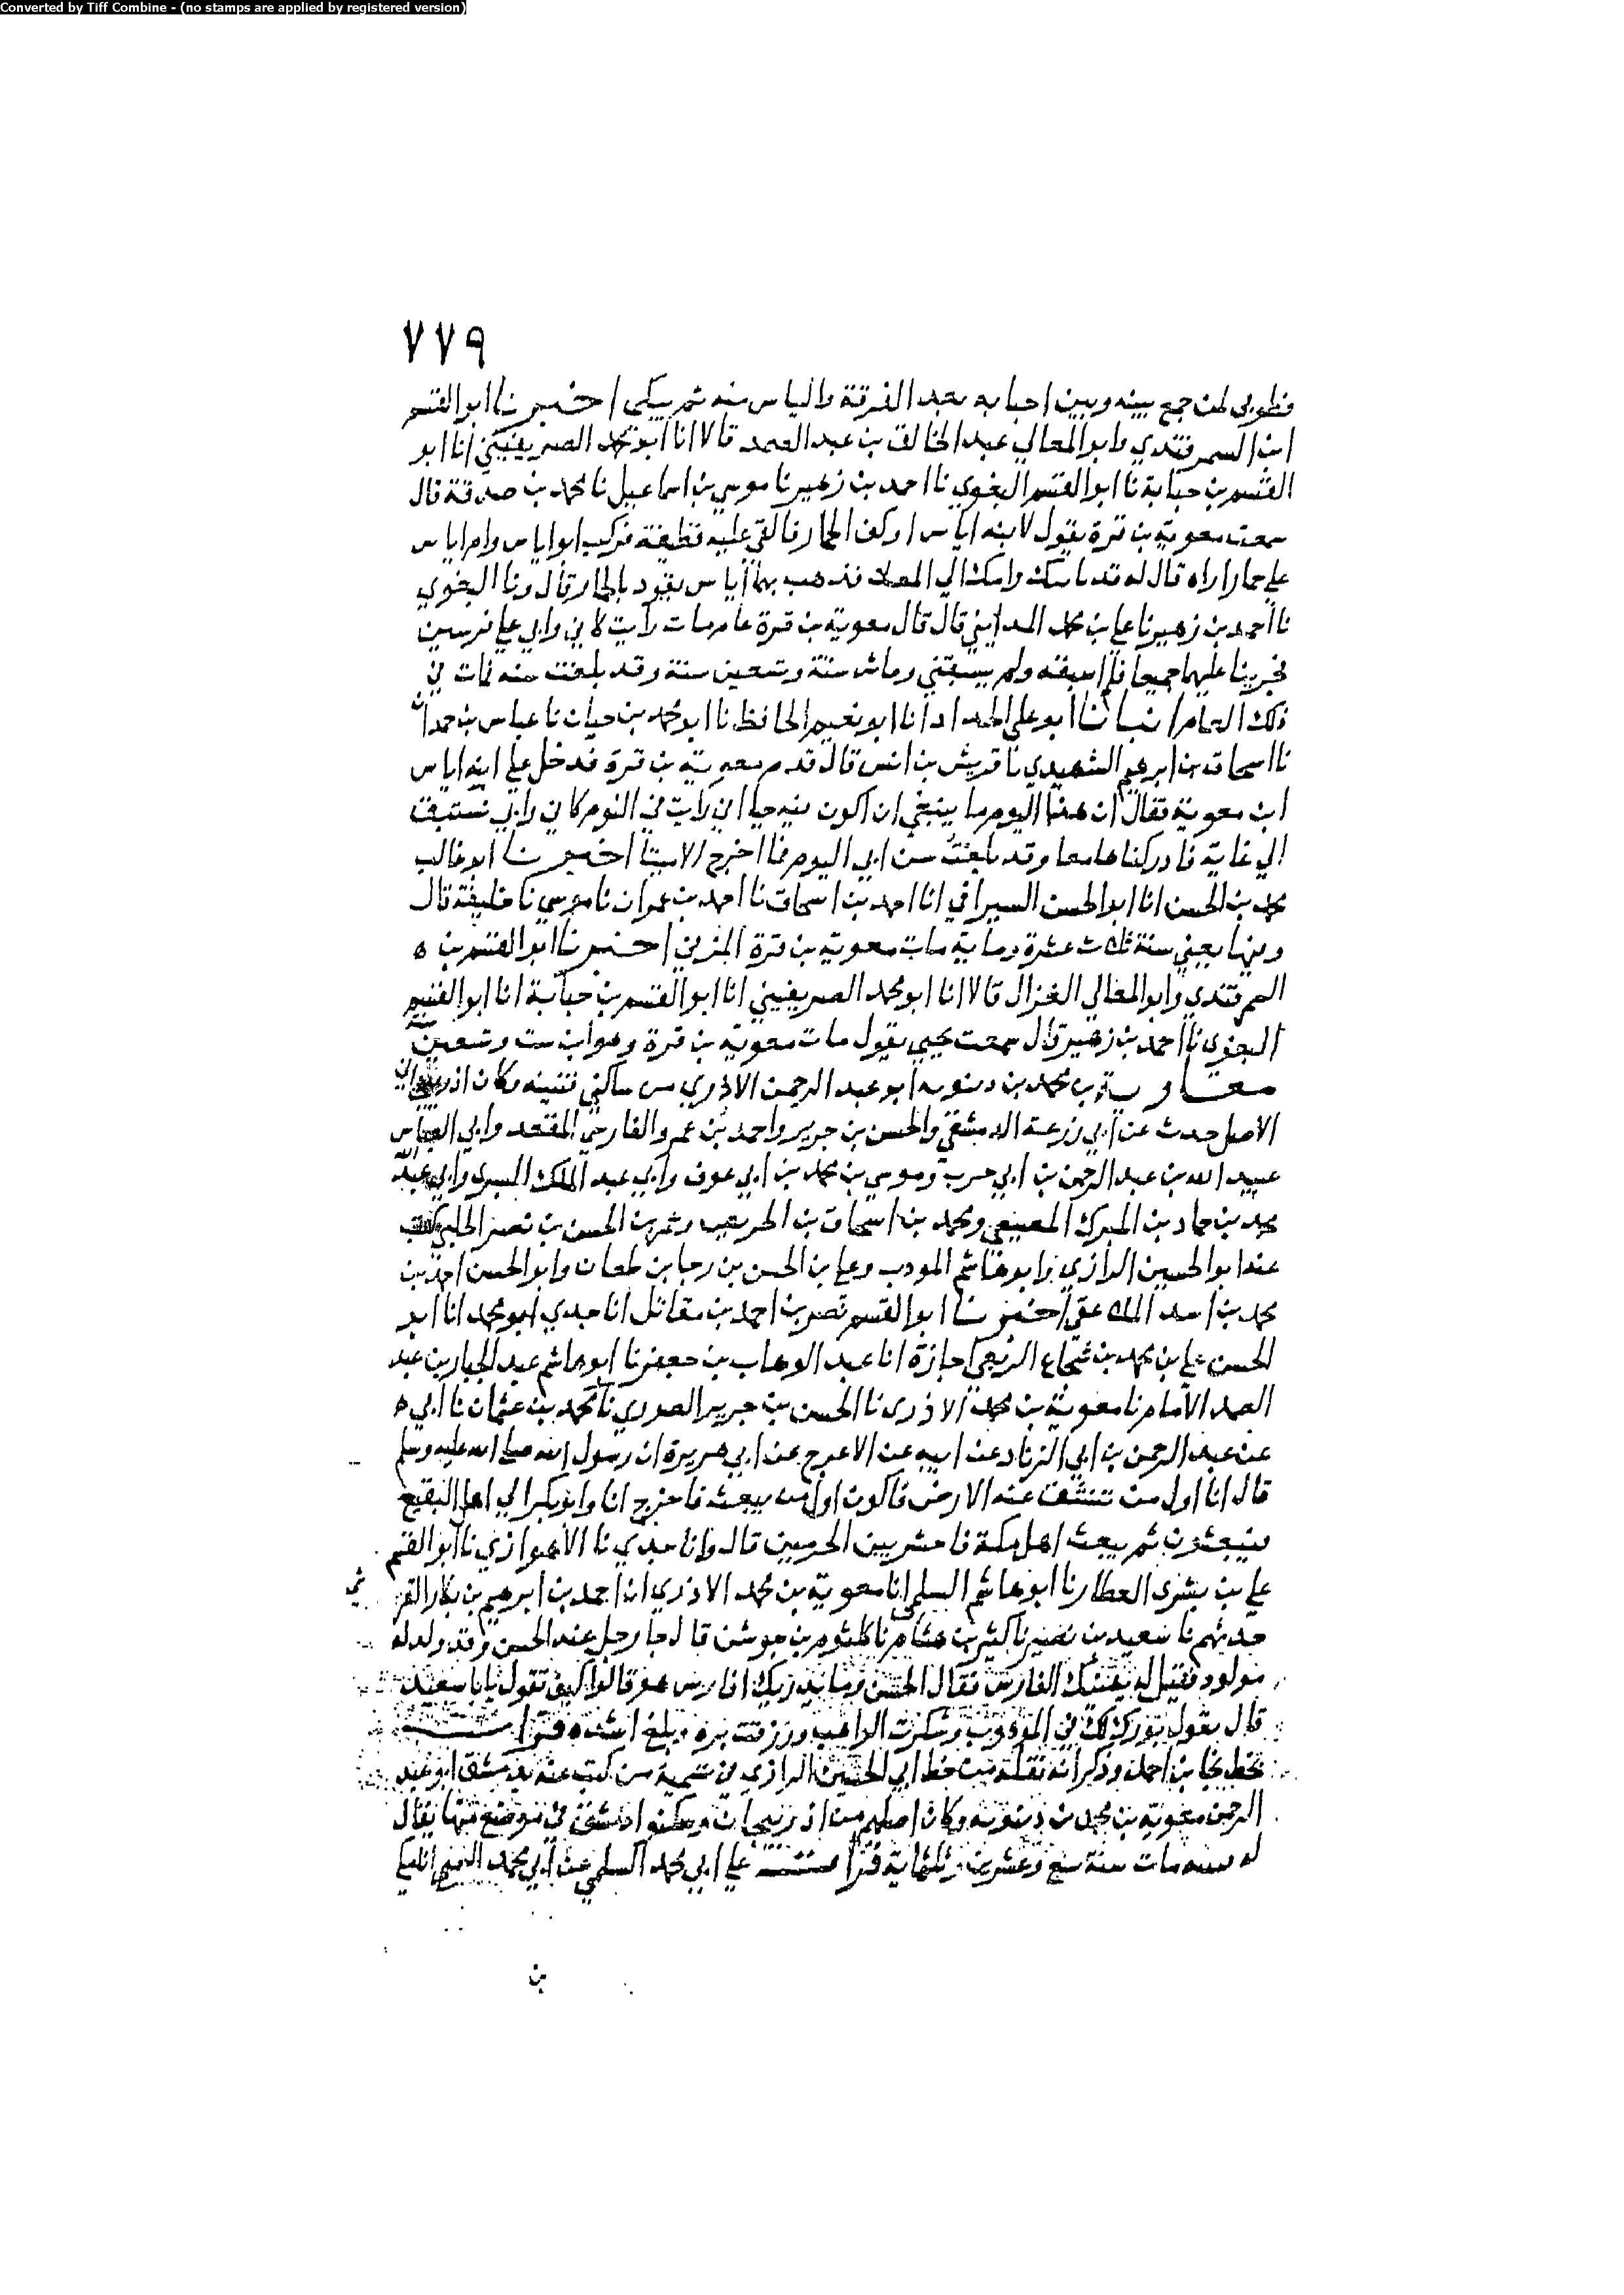 Converted by Tiff Combine - (no stamps are applied by registered version)
٧٧٩
فطوبى لمن جمع بينه وبين احبابه بعد الفرقة والياس منه ثم يبكي اخبرنا ابو القسم
ابن السمرقندي وابو المعالي عبد الخالق بن عبد الصمد قالا انا ابو محمد الصريفيني انا ابو
القسم بن حبابة نا ابو القسم البغوي نا احمد بن زهير نا موسي بن اسماعيل نا محمد بن صدقة قال
سمعت معوية بن قرة يقول لابنه اياس اركف الحمار فالقي عليه قطيفة فركب ابو اياس وام اياس
علي حمار اراه قال له قد ماسك وامك الي المصلا فذهب بهما اياس يقود بالحمار قال ونا البغوي
نا احمد بن زهير نا علي بن محمد المدايني قال قال معوية بن قرة عام مات رايت كاني وابي علي فرسين
فجرينا عليهما جميعا فلم اسبقه ولم يسبقني وعاش ستة وتسعين سنة وقد بلغت سنه فمات في
ذلك العام انبانا ابو علي الحداد انا ابو نعيم الحافظ نا ابو محمد بن حيان نا عباس بن حمدان
نا اسحاق بن ابرهيم الشهيدي نا قريش بن انس قال قدم معوية بن قرة فدخل علي ابنه اياس
ابن معوية فقال ان هذا اليوم ما ينبغي ان اكون فيه حيا اني رايت في النوم كاني وابي نستبق
الي غاية فادركناها معا وقد بلغت سن ابي اليوم فما اخرج الا ميتا اخبرنا ابو غالب
محمد بن الحسن انا ابو الحسن السيرافي انا احمد بن اسحاق نا احمد بن عمران نا موسي نا خليفة قال
وفيها يعني سنة ثلاث عشرة ومايه مات معوية بن قرة المزني اخبرنا ابو القسم بن ه
السمرقندي وابو المعالي الغزال قالا انا ابو محمد الصريفيني انا ابو القسم بن حبابة انا ابو القسم
البغوي نا احمد بن زهير قال سمعت يحيى يقول مات معوية بن قرة وهو ابن ست وتسعين سنة
معاوية بن محمد بن دينويه ابو عبد الرحمن الاذري من ساكني قنينه وكان اذربيجاني
الاصل حدث عن ابي زرعة الدمشقي والحسن بن جرير واحمد بن عمرو الفارسي المقعد وابي العباس
عبيد الله بن عبد الرحمن بن ابي حرب وموسي بن محمد بن ابي عوف وابي عبد الملك البسري وابي عبد الله
محمد بن حماد بن المبرك المصيصي ومحمد بن اسحاق بن الحريص وعمر بن الحسن بن نصر الحلبي كتب
عنه ابو الحسين الرازي وابو هاشم المودب وعلي بن الحسن بن رجا بن طعان وابو الحسن احمد بن
محمد بن اسد الملاعقي اخبرنا ابو القسم نصر بن احمد بن مقاتل انا جدي ابو محمد انا ابو
الحسن علي بن محمد بن شجاع الربعي اجازة انا عبد الوهاب بن جعفر نا ابو هاشم عبد الجبار بن عبد
الصمد الامام نا معوية بن محمد الاذري نا الحسن بن جرير الصوري نا محمد بن عثمان نا ابي ه
عن عبد الرحمن بن ابي الزناد عن ابيه عن الاعرج عن ابي هريرة ان رسول الله صلي الله عليه وسلم
قال انا اول من تنشق عنه الارض فاكون اول من يبعث فاخرج انا وابو بكر الي اهل البقيع
فيبعثون ثم يبعث اهل مكة فاحشر بين الحرمين قال وانا جدي نا الاهوازي نا ابو القسم
علي بن بشرى العطار نا ابو هاشم السلمي انا معوية بن محمد الاذري ان احمد بن ابرهيم بن بكار القر
شي
حدثهم نا سعيد بن نصير نا كثير بن هشام نا كلثوم بن جوشن قال جا رجل عند الحسن وقد ولد له
مولود فقيل له يهنئك الفارس فقال الحسن وما يدريك افارس هو قالوا كيف تقول يابا سعيد
قال يقول بورك لك في الموهوب وشكرت الواهب ورزقت بره وبلغ اشده قرات
بخط نجا بن احمد وذكر انه نقله من خط ابي الحسين الرازي في تسمية من كتب عنه بدمشق ابو عبد
الرحمن معوية بن محمد بن دينويه وكان اصلهم من اذربيجان وسكنوا دمشق في موضع منها يقال
له مات سنة سبع وعشرين وثلثماية قرات علي ابي محمد السلمي عن ابي محمد التميمي انا مكي
بن